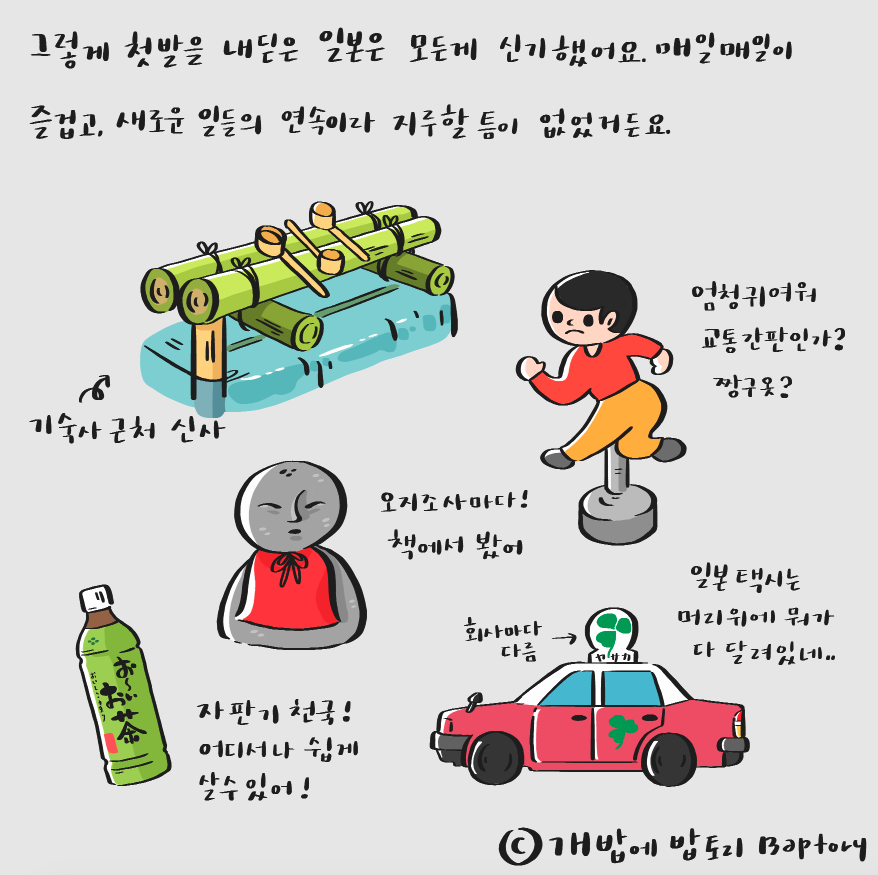 그렇게 첫발을 내딛은 일본은 모든게 신기했어요. 매일매일이
즐겁고, 새로운 일들의 연속이라 지루할 틈이 없었거든요.
엄청귀여워
교통간판인가?
짱구옷?
기숙사 근처 신사
오지조사마다!
책에서 봤어
일본 택시는
머리위에 뭐가
다 달려있네..
회사마다
다름
ヤサカ
お〜い
お茶
자판기 천국!
어디서나 쉽게
살수있어!
© 개밥에 밥토리 Baptory